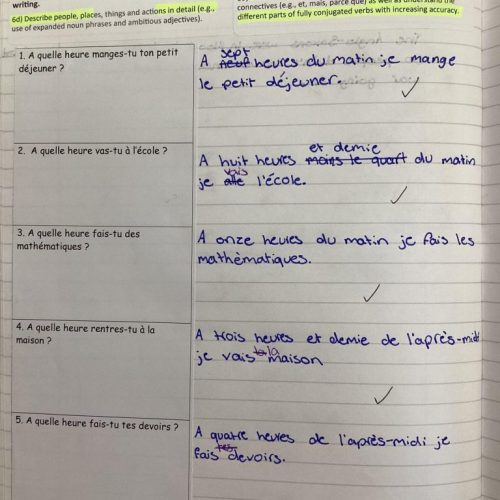 writing.
6d) Describe people, places, things and actions in detail (e.g.,
use of expanded noun phrases and ambitious adjectives).
connectives (e.g., et, mais, parce que) as well as understand the
different parts of fully conjugated verbs with increasing accuracy.
1. A quelle heure manges-tu ton petit
déjeuner ?
sept
A neuf heures du matin je mange
le petit déjeuner.
2. A quelle heure vas-tu à l'école ?
et demie
A huit heures moins le quart du matin
vais
je alle l'école.
3. A quelle heure fais-tu des
mathématiques ?
A onze heures du matin je fais les
mathématiques.
4. A quelle heure rentres-tu à la
maison ?
A trois heures et demie de l'après-midi
je vais la maison
5. A quelle heure fais-tu tes devoirs ?
A quatre heures de l'après-midi je
tes
fais devoirs.